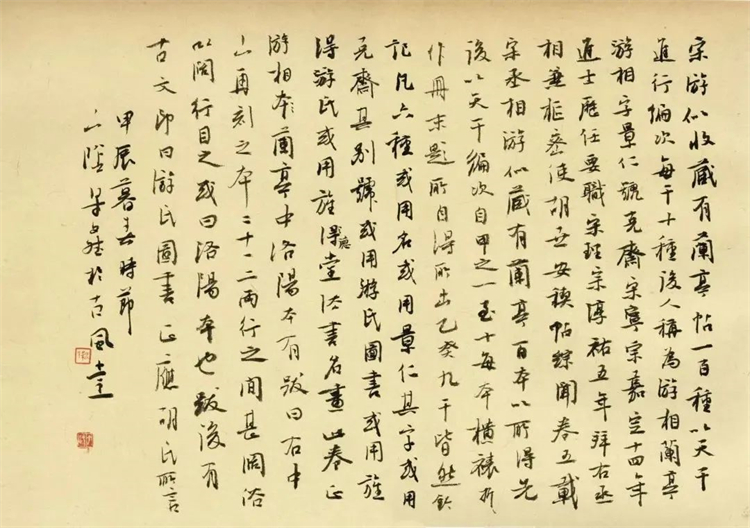 宋游似收藏有蘭亭帖一百種以天干
進行編次每干十種後人稱為游相蘭亭
游相字景仁號克齋宋寧宗嘉定十四年
進士歷任要職宋理宗淳祐五年拜右丞
相兼樞密使胡世安禊帖綜聞卷五載
宋丞相游似藏有蘭亭百本以所得先
後以天干編次自甲之一至十每本橫裱折
作冊末題所自得所出乙癸九干皆然鈐
記凡六種或用名或用景仁其字或用
克齋其別號或用游氏圖書或用旌
得游氏或用旌德堂法書名畫此卷正
游相本蘭亭中洛陽本有跋曰右中
山再刻之本二十一二兩行之間甚闊俗
以闊行目之或曰洛陽本也跋後有
古文印曰游氏圖書正應胡氏所言
甲辰暮春時節
山陰 於古風堂